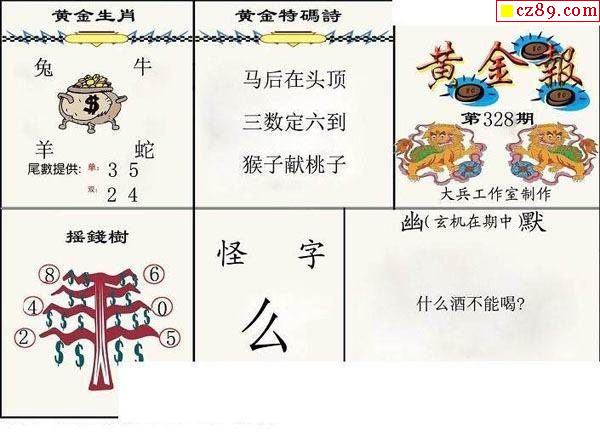 cz89.com
黄金生肖
兔 牛
$
羊 蛇
尾數提供: 单: 3 5
双: 2 4
黄金特碼詩
马后在头顶
三数定六到
猴子献桃子
黄金報
第328期
大兵工作室制作
摇錢樹
8 6
4 0
2 5
$ $ $ $ $ $ $ $
怪 字
么
幽(玄机在期中)默
什么酒不能喝?